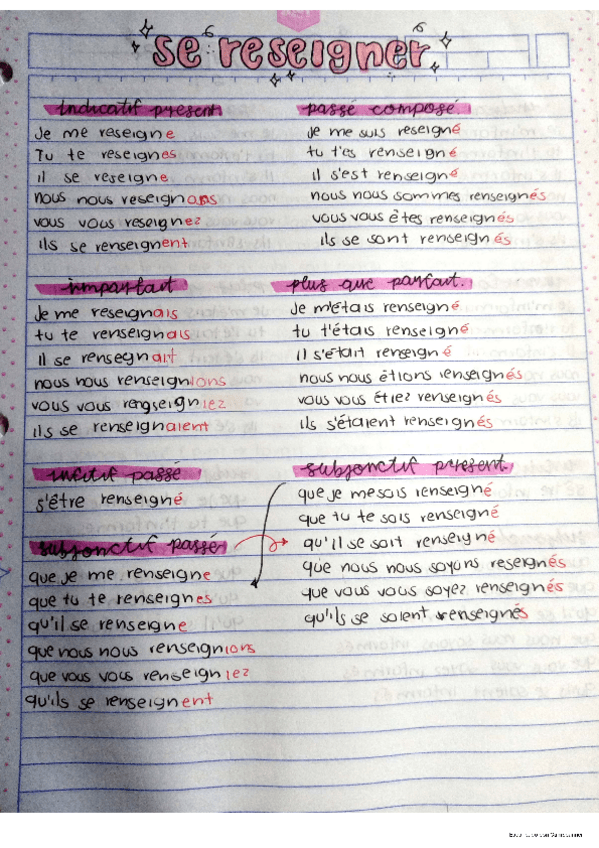 se reseigner
indicatif present
Je me reseigne
Tu te reseignes
il se reseigne
nous nous reseignons
vous vous reseignez
ils se renseignent
passé composé.
Je me suis reseigné
tu t'es renseigné
il s'est renseigné
nous nous sommes renseignés
vous vous êtes renseignés
ils se sont renseignés
imparfait
Je me reseignais
tu te renseignais
il se rensegnait
nous nous renseignions
vous vous rengseigniez
ils se renseignaient
plus que parfait.
Je m'étais renseigné
tu t'étais renseigné
il s'était renseigné
nous nous étions renseignés
vous vous étiez renseignés
ils s'étaient renseignés
infitif passé
s'être renseigné
subjonctif passé
que je me renseigne
que tu te renseignes
qu'il se renseigne
que nous nous renseignions
que vous vous renseigniez
qu'ils se renseignent
subjonctif present
que je me sois renseigné
que tu te sois renseigné
qu'il se soit renseigné
que nous nous soyons reseignés
que vous vous soyez renseignés
qu'ils se soient renseignés